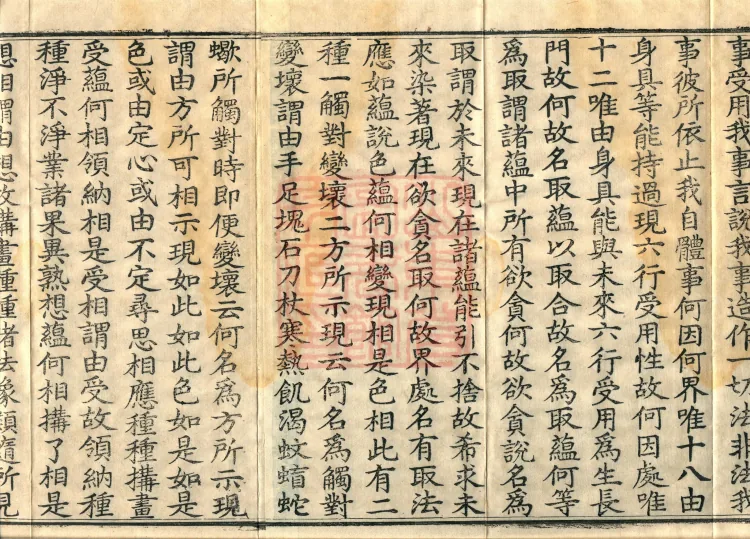 事受用我事言說我事造作一切法非法我
事彼所依止我自體事何因何界唯十八由
身具等能持過現六行受用性故何因處唯
十二唯由身具能與未來六行受用爲生長
門故何故名取蘊以取合故名爲取蘊何等
爲取謂諸蘊中所有欲貪何故欲貪說名爲
取謂於未來現在諸蘊能引不捨故希求未
來染著現在欲貪名取何故界處名有取法
應如蘊說色蘊何相變現相是色相此有二
種一觸對變壞二方所示現云何名爲觸對
變壞謂由手足塊石刀杖寒熱飢渴蚊蝱蛇
蠍所觸對時即便變壞云何名爲方所示現
謂由方所可相示現如此如此色如是如是
色或由定心或由不定尋思相應種種搆畫
受蘊何相領納相是受相謂由受故領納種
種淨不淨業諸果異熟想蘊何相搆了相是
想相謂由想故搆畫種種諸法像類隨所見